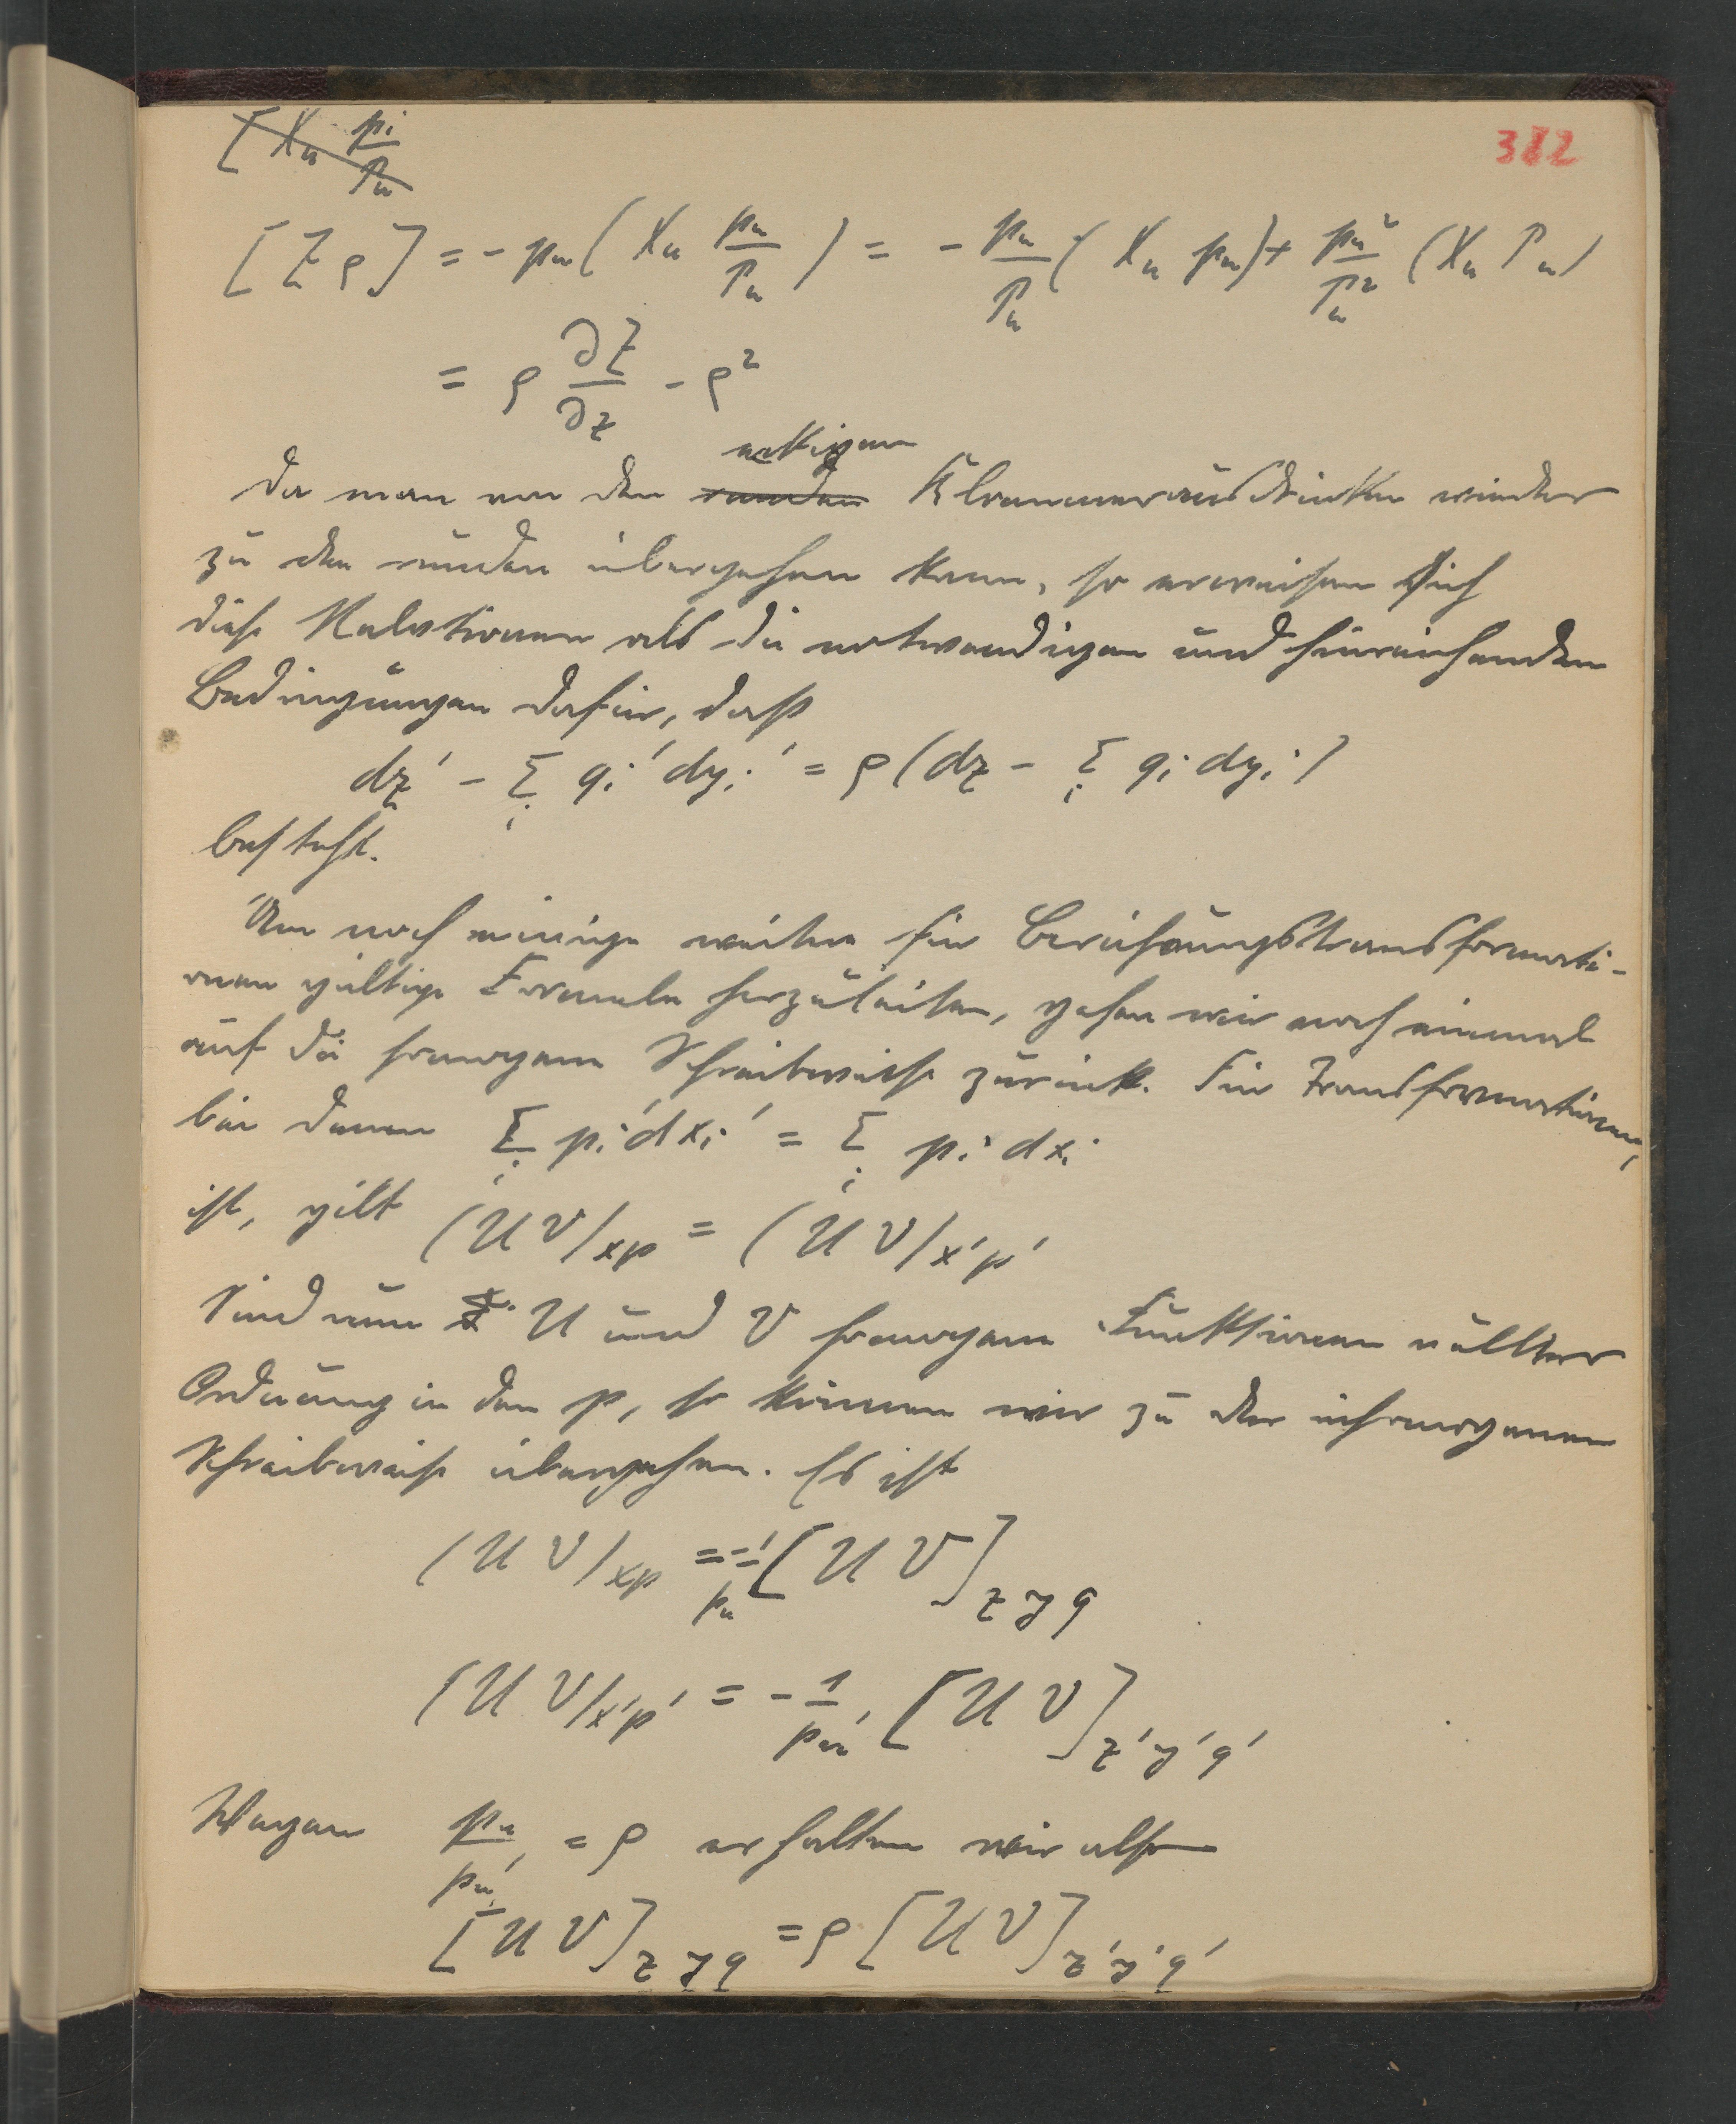 [X_n p_i/P_n
382
[Z ρ] = - p_n (X_n p_n/P_n) = - p_n/P_n (X_n p_n) + p_n²/P_n² (X_n P_n)
= ρ ∂Z/∂z - ρ²
eckigen
Da man von den runden Klammerausdrücken wieder
zu den runden übergehen kann, so erweisen sich
diese Relationen als die notwendigen und hinreichenden
Bedingungen dafür, daß
dz' - Σ_i q_i' dy_i' = ρ (dz - Σ_i q_i dy_i)
besteht.
Um noch einige weitere für Berührungstransformati-
onen gültige Formeln herzuleiten, gehen wir noch einmal
auf die homogene Schreibweise zurück. Für Transformationen,
bei denen Σ_i p_i' dx_i' = Σ_i p_i dx_i
ist, gilt (U V)_{xp} = (U V)_{x'p'}
Sind nun U und V homogene Funktionen nullter
Ordnung in den p, so können wir zu der inhomogenen
Schreibweise übergehen. Es ist
(U V)_{xp} = - 1/p_n [U V]_{z y q}
(U V)_{x'p'} = - 1/p_n' [U V]_{z' y' q'}
Wegen p_n/p_n' = ρ erhalten wir also
[U V]_{z y q} = ρ [U V]_{z' y' q'}